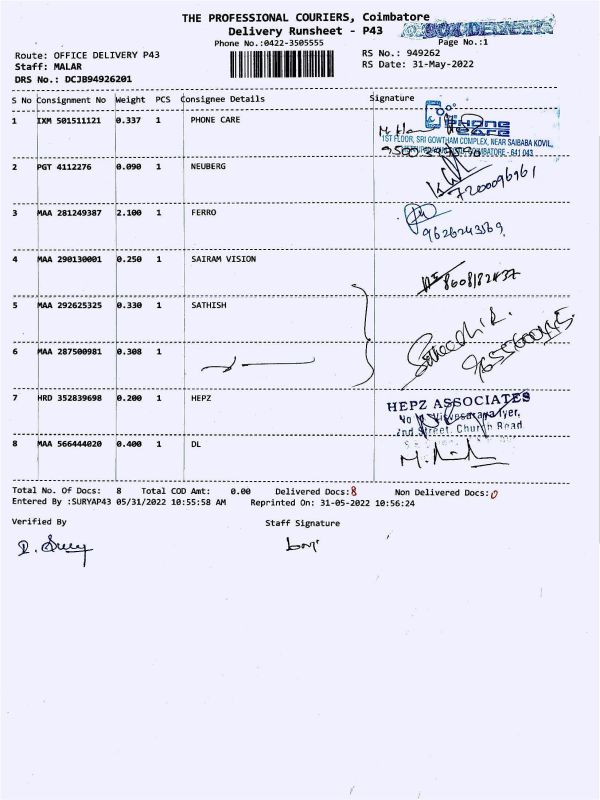 THE PROFESSIONAL COURIERS, Coimbatore
Delivery Runsheet - P43
BOX DELIVERY
Phone No.:0422-3505555
Page No.:1
Route: OFFICE DELIVERY P43
RS No.: 949262
Staff: MALAR
RS Date: 31-May-2022
DRS No.: DCJB94926201
S No Consignment No Weight PCS Consignee Details Signature
1 IXM 501511121 0.337 1 PHONE CARE
PHONE CARE
1ST FLOOR, SRI GOWTHAM COMPLEX, NEAR SAIBABA KOVIL,
COIMBATORE - 641 043
2 PGT 4112276 0.090 1 NEUBERG
7200096961
3 MAA 281249387 2.100 1 FERRO
9626243569
4 MAA 290130001 0.250 1 SAIRAM VISION
8608182437
5 MAA 292625325 0.330 1 SATHISH
6 MAA 287500981 0.308 1
9655600445
7 HRD 352839698 0.200 1 HEPZ
HEPZ ASSOCIATES
2nd Street, Church Road
8 MAA 566444020 0.400 1 DL
Total No. Of Docs: 8 Total COD Amt: 0.00 Delivered Docs:8 Non Delivered Docs:0
Entered By :SURYAP43 05/31/2022 10:55:58 AM Reprinted On: 31-05-2022 10:56:24
Verified By Staff Signature